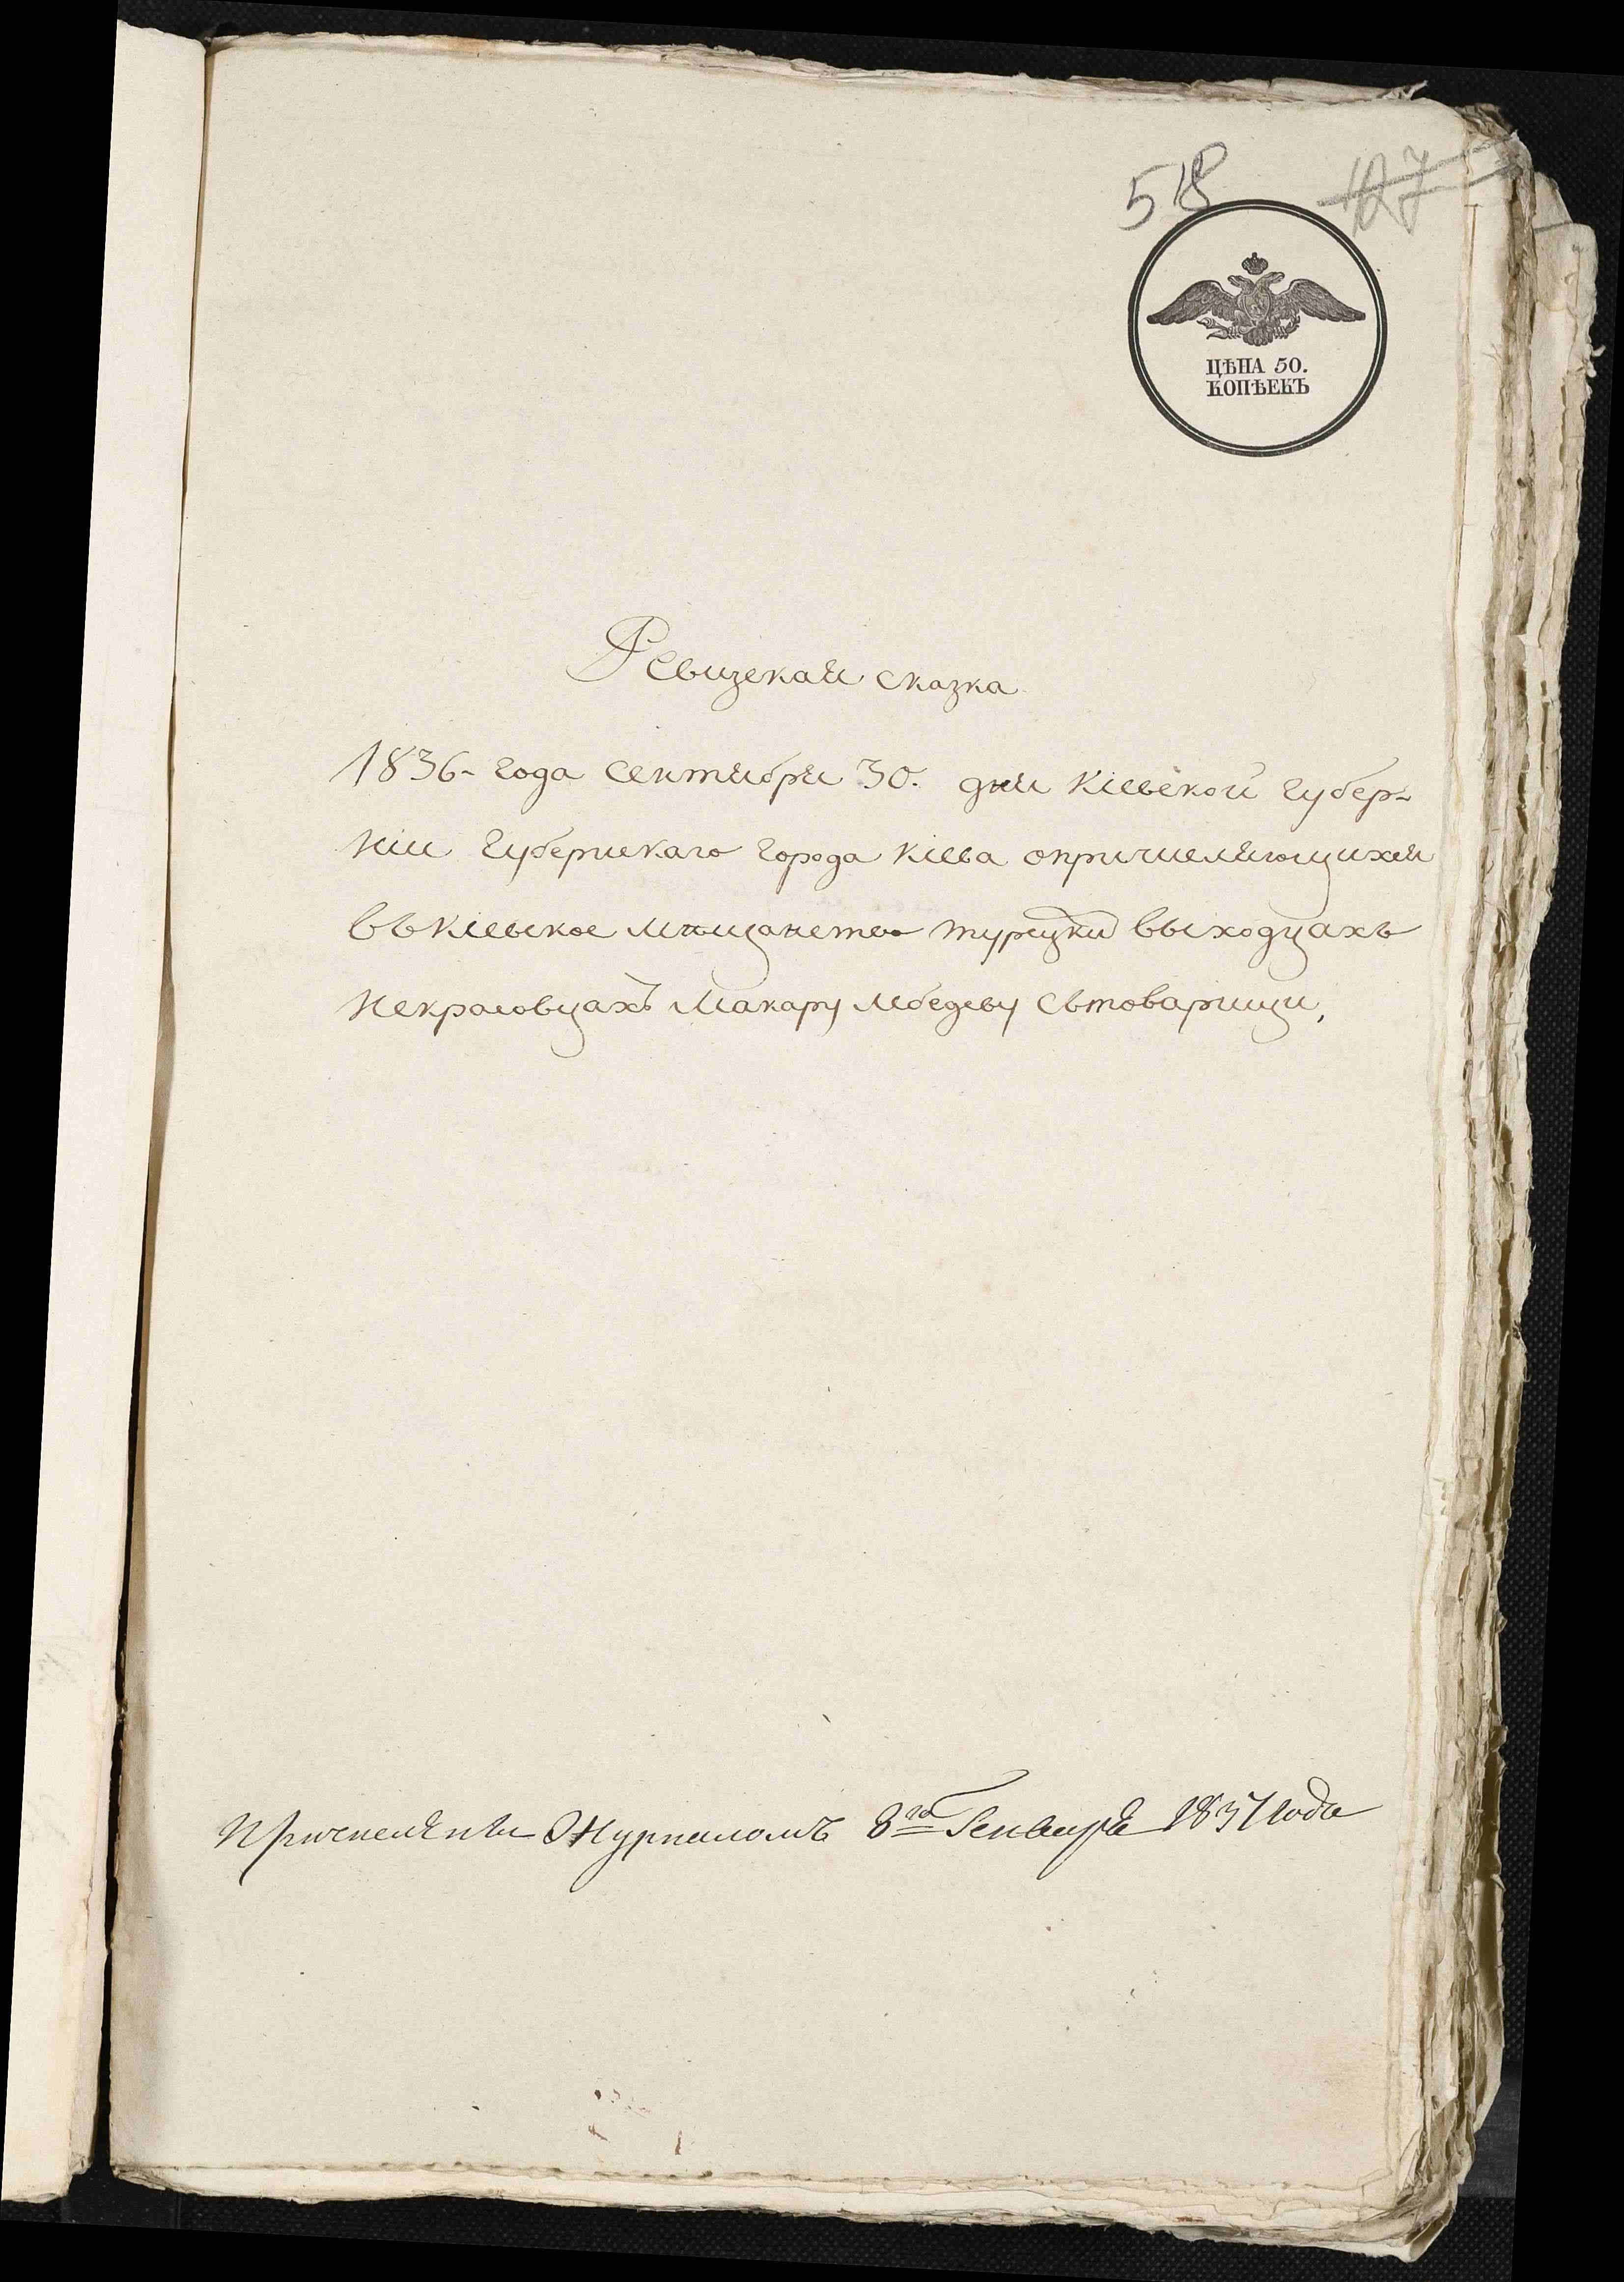 58 127
ЦѢНА 50.
КОПѢЕКЪ
Ревизская сказка
1836-года сентября 30. дня Кіевской губер-
ніи Губернскаго города Кіева опричисляющихся
въ Кіевское мѣщанство турецких выходцахъ
Некрасовцахъ Макару Лебедеву сътоварищи,
Причислены Журналомъ 8го Генваря 1837 года